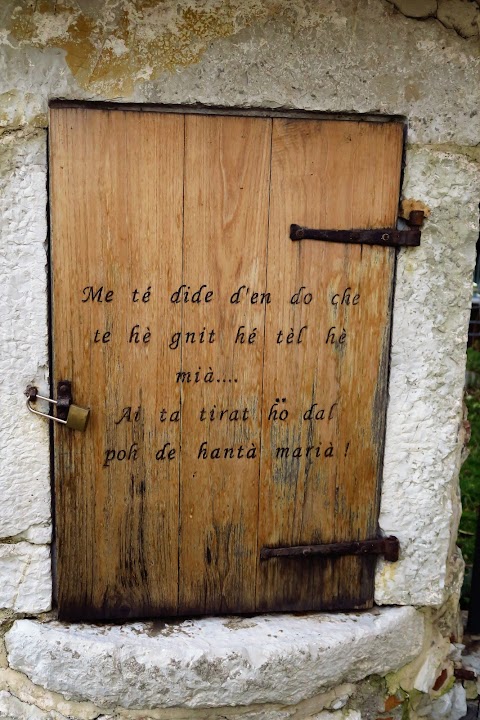 Me té dide d'en do che
te hè gnit hé tèl hè
mià....
Ai ta tirat hö dal
poh de hantà marià !